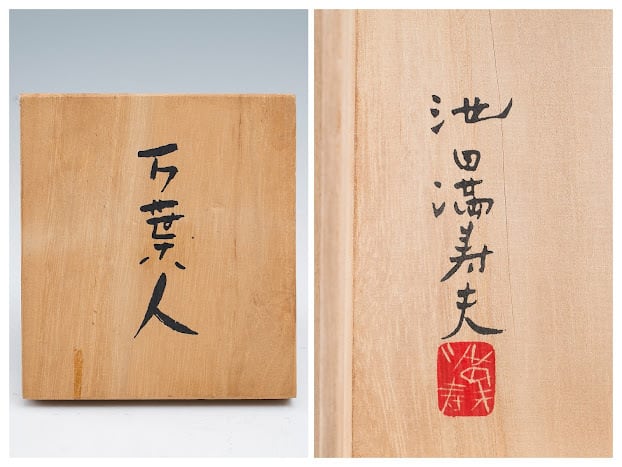 万葉人
池田満寿夫
満寿夫